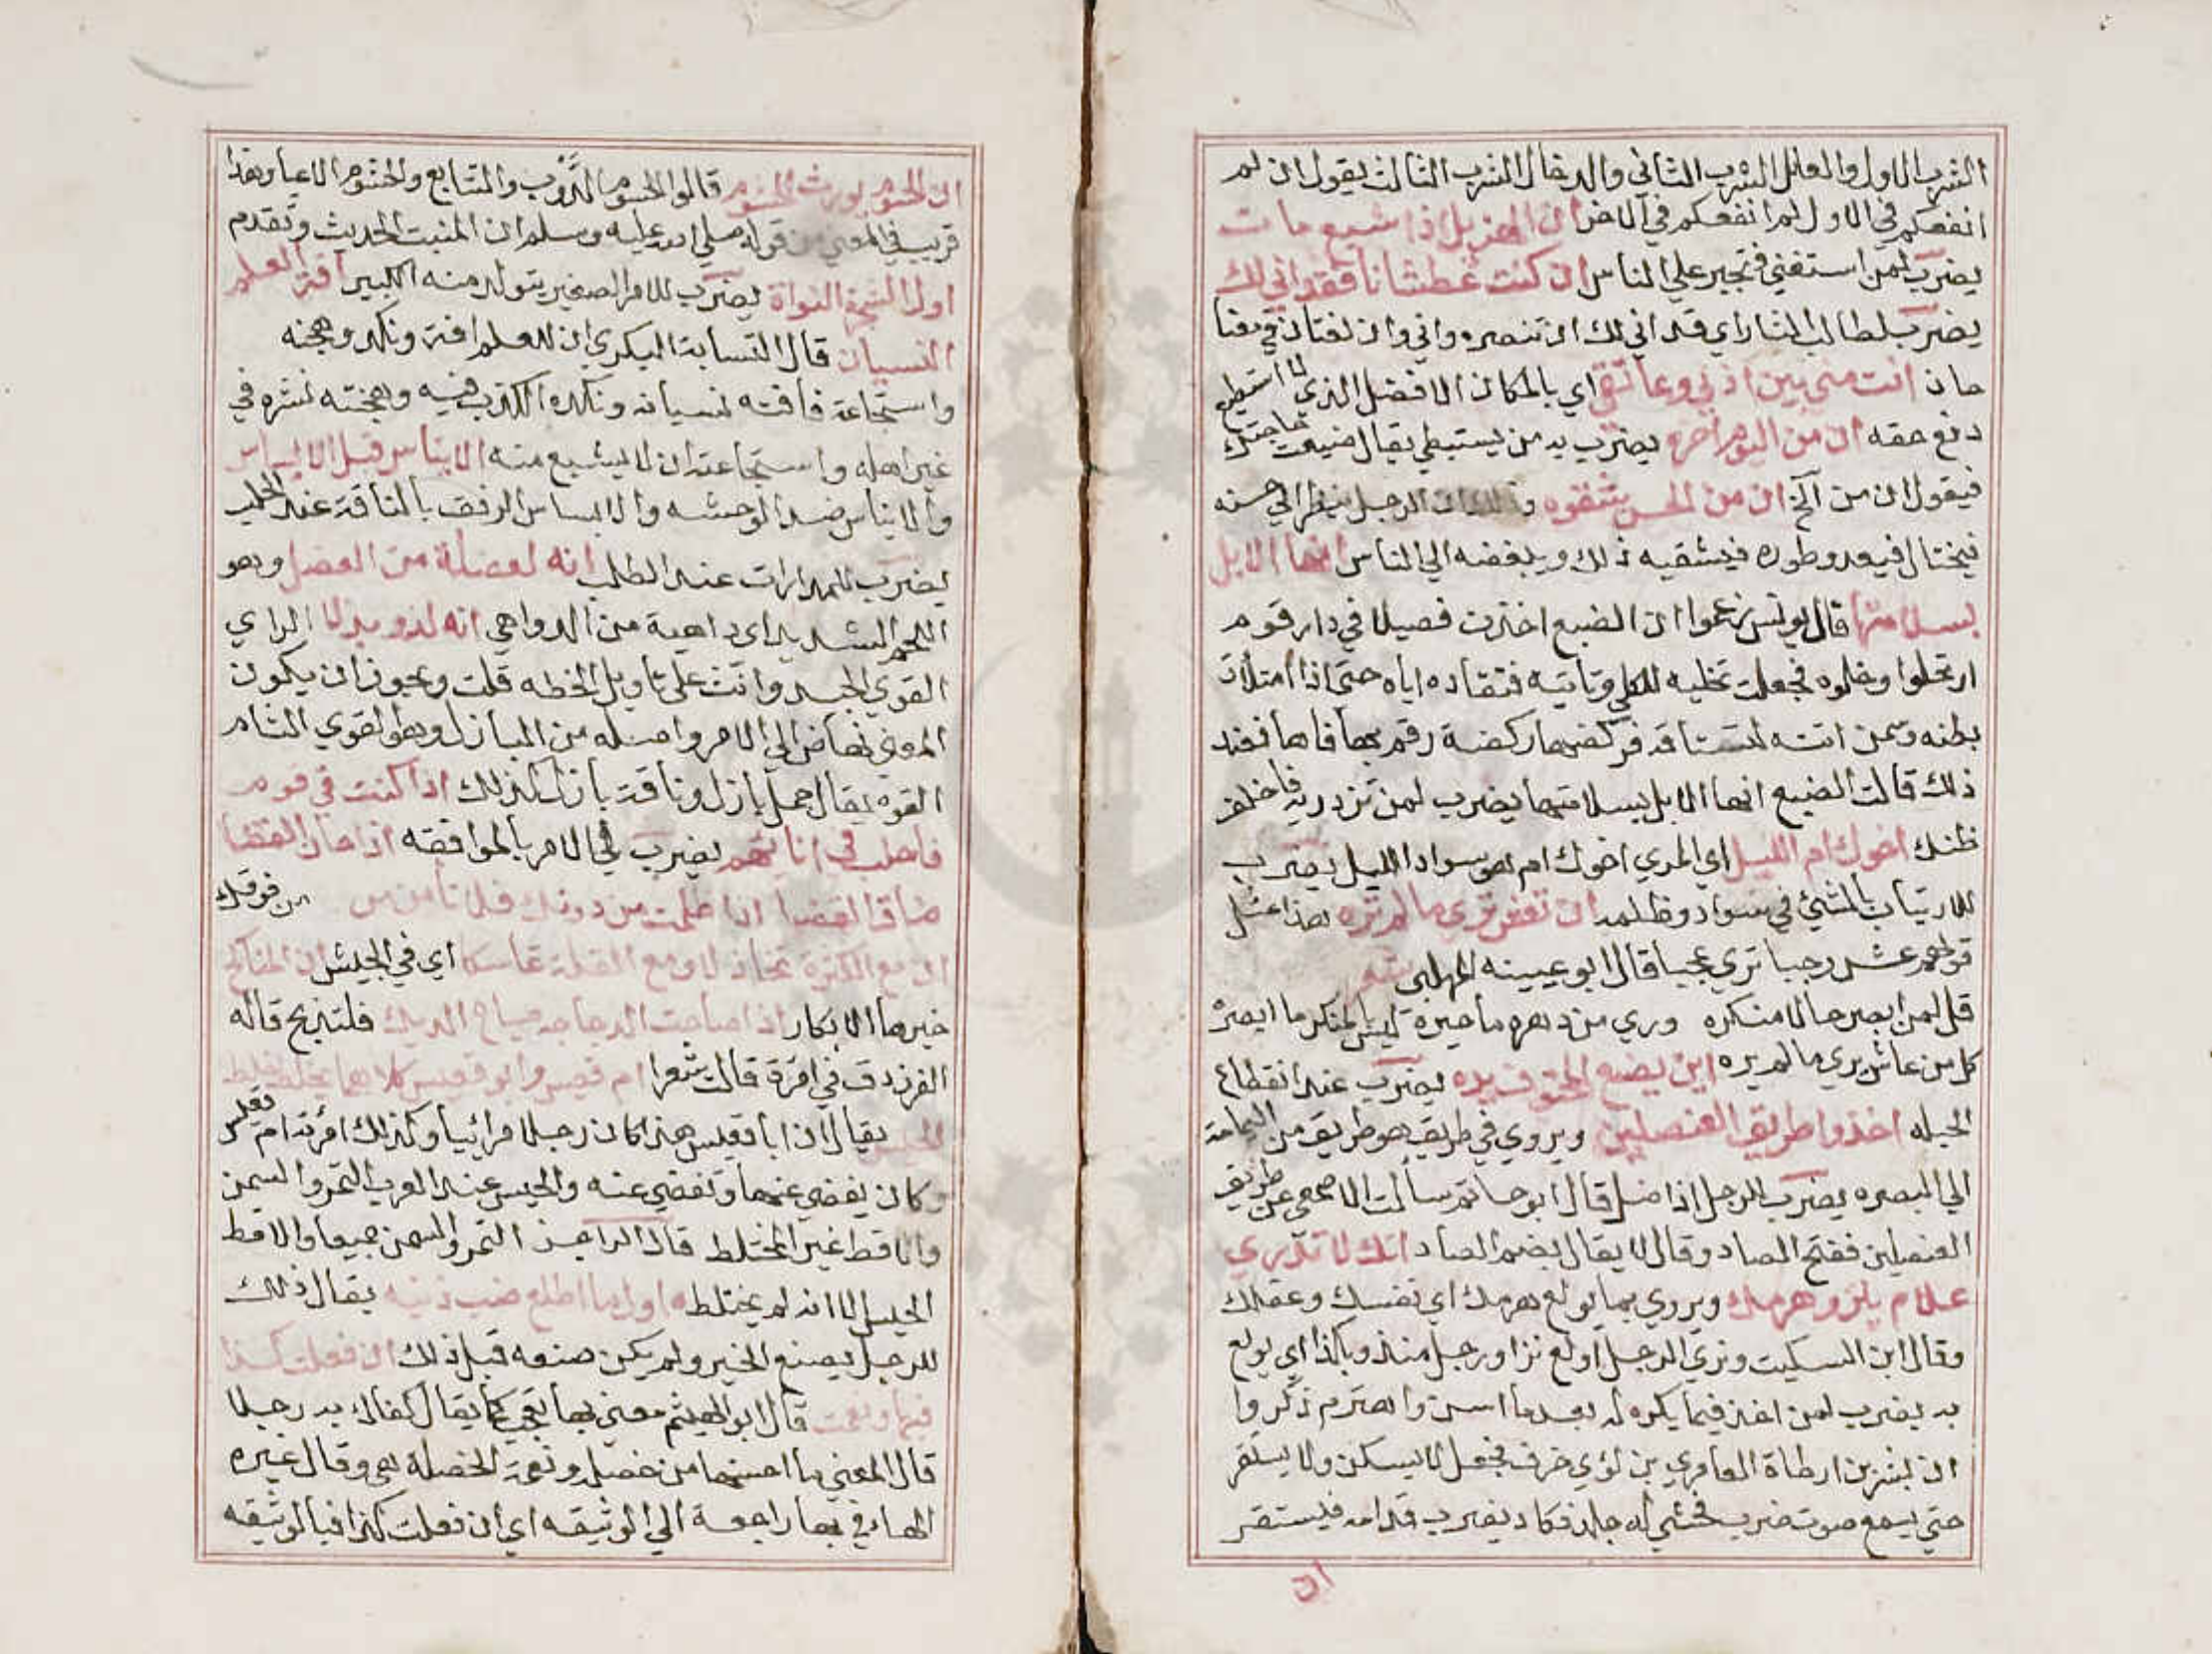 الشرب الاول والعلل الشرب الثاني والدخال الشرب الثالث يقول ان لم
انفعكم في الاول لم انفعكم في الاخر ان الهزيل اذا شبع مات
يضرب لمن استغني فتجبر علي الناس ان كنت عطشانا فقد اني لك
يضرب لطالب الثار اي قد اني لك ان تنصره واني وان لغتان في معنا
حان انت مني بين اذني وعاتقي اي بالمكان الافضل الذي لا استطيع
دفع حقه ان من اليوم اخره يضرب به من يستبطي يقال ضيعت حاجتك
فيقول ان من الخ ان من الحسن شقوه وذلك ان الرجل ينظر الي حسنه
فيختال فيعدو طوره فيشقيه ذلك ويبغضه الي الناس انها الابل
بسلامتها قال يونس زعموا ان الضبع اخذت فصيلا في دار قوم
ارتحلوا وخلوه فجعلت تخليه للكلي وتاتيه فتقاده اياه حتي اذا امتلات
بطنه وسمن اتته لتستاقه فركضها ركضة رقم بها فاها فعند
ذلك قالت الضبع انها الابل بسلامتها يضرب لمن تزدريه فاخلف
ظنك اخوك ام الليل اي المري اخوك ام هو سواد الليل يضرب
للارتياب بالشئ في سواد وظلمه ان تعش تري ما لم تره هذا مثل
قولهم عش رجبا تري عجبا قال ابو عيينه المهلبي شعر
قل لمن ابصر حالا منكره وري من دهره ما حيره ليس بالمنكر ما ابصره
كل من عاش يري ما لم يره اين يضع المخنوق يده يضرب عند انقطاع
الحيله اخذوا طريق العنصلين ويروي في طريق هو طريق من اليمامة
الي البصره يضرب للرجل اذا ضل قال ابو حاتم سالت الاصمعي عن طريق
العنصلين ففتح الصاد وقال لا يقال بضم الصاد انك لا تدري
علام ينزو هرمك ويروي بما يولع هرمك اي نفسك وعقلك
وقال ابن السكيت ونزي الرجل اولع نزا ورجل منذ وبكذا اي يولع
به يضرب لمن اخذ فيما يكره له بعد ما اسن واهترم ذكروا
ان بشر بن ارطاة العامري بن لؤي خرف فجعل لا يسكن ولا يستقر
حتي يسمع صوت ضرب فحشي له جلد فكاد يضرب قدامه فيستقر
ان
ان الحسوم يورث الحشوم قالوا الحسوم الدؤب والتتابع والحشوم الاعيا وهذا
قريب في المعني من قوله صلي الله عليه وسلم ان المنبت الحديث وتقدم
اول الشجرة النواة يضرب للامر الصغير يتولد منه الكبير افة العلم
النسيان قال النسابة البكري ان للعلم افة ونكد وهجنه
واستجاعة فافته نسيانه ونكده الكذب فيه وهجنته نشره في
غير اهله واستجاعته ان لا يشبع منه الايناس قبل الابساس
والايناس ضد الوحشه والابساس الرفق بالناقة عند الحلب
يضرب للمدارات عند الطلب انه لعضلة من العضل وهو
اللحم الشديد اي داهية من الدواهي انه لذو بزلا الراي
القوي الجيد وانث علي تاويل الخطه قلت ويجوز ان يكون
المعني نهاض الي الامر واصله من البازل وهو القوي التام
القوه يقال جمل بازل وناقة بازل كذلك اذا كنت في قوم
فاحلب في انايهم يضرب في الامر بالموافقه اذا حان القضا
ضاق الفضا اذا ظلمت من دونك فلا تامن من فوقك
ان مع الكثرة تخاذلا ومع القلة تماسكا اي في الجيش ان المناكح
خيرها الابكار اذا صاحت الدجاجه صياح الديك فلتذبح قاله
الفرزدق في امرة قالت شعرا ام قعيس وابو قعيس كلاهما يخلط خلط
الحيس يقال ان ابا قعيس هذا كان رجلا مرائيا وكذلك امرته ام قعيس
وكان يغضي عنها وتغضي عنه والحيس عند العرب التمر والسمن
والاقط غير المختلط قال الراجز التمر والسمن جميعا والاقط
الحيس الا انه لم يختلط اول ما اطلع ضب ذنبه يقال ذلك
للرجل يصنع الخير ولم يكن صنعه قبل ذلك ان فعلت كذا
فبها ونعمت قال ابو الهيثم معني بها تعجب كما يقال كفاك به رجلا
قال المعني ما احسنها من خصله ونعمة الخصلة هي وقال غيره
الهاء في بها راجعة الي الوثيقه اي ان فعلت كذا فبالوثيقه